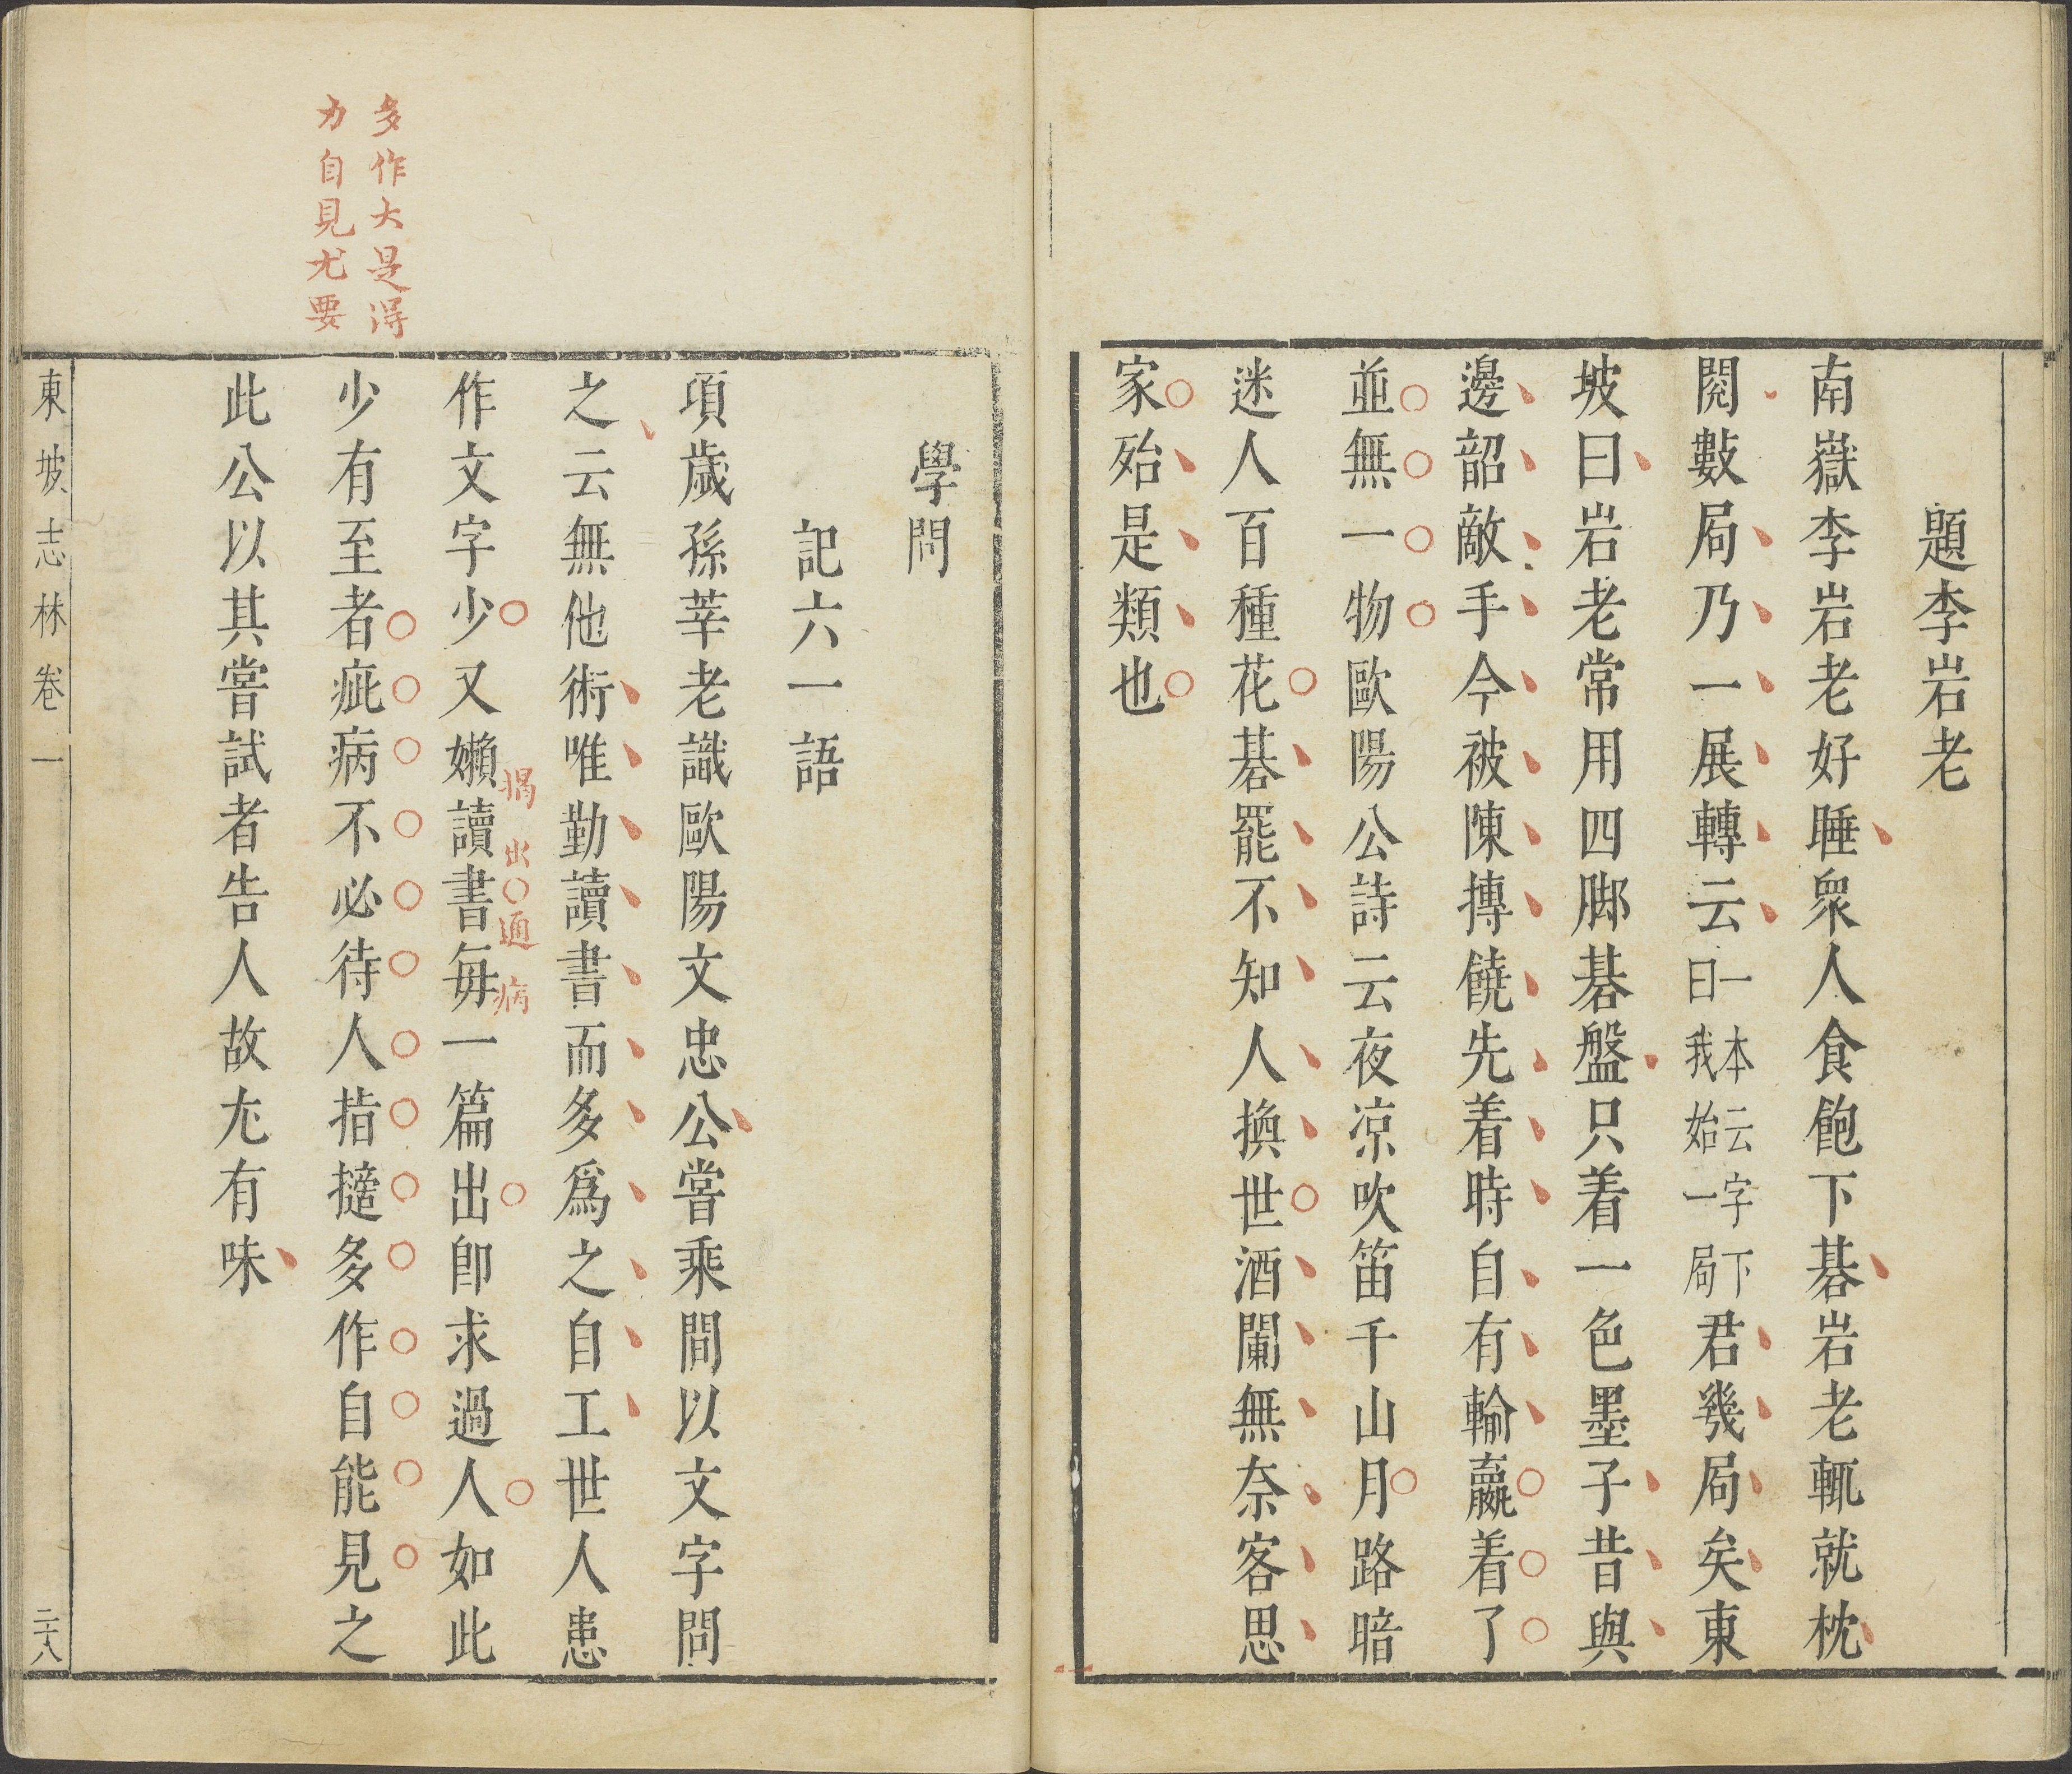 題李岩老
南嶽李岩老好睡衆人食飽下碁岩老輒就枕
閱數局乃一展轉云一本云字下曰我始一局君幾局矣東
坡曰岩老常用四脚碁盤只着一色墨子昔與
邊韶敵手今被陳摶饒先着時自有輸贏着了
並無一物歐陽公詩云夜凉吹笛千山月路暗
迷人百種花碁罷不知人換世酒闌無奈客思
家殆是類也
多作大是得
力自見尤要
學問
記六一語
項歲孫莘老識歐陽文忠公嘗乘間以文字問
之云無他術唯勤讀書而多爲之自工世人患
作文字少又嬾讀書每一篇出卽求過人如此
揭出通病
少有至者疵病不必待人指擿多作自能見之
此公以其嘗試者告人故尢有味
東坡志林卷一
二十八